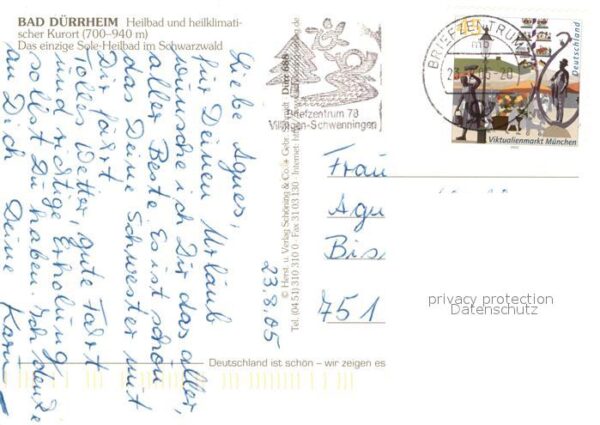 BAD DÜRRHEIM Heilbad und heilklimati-
scher Kurort (700–940 m)
Das einzige Sole-Heilbad im Schwarzwald
Liebe Agnes,
für Deinen Urlaub
wünsche ich Dir das aller,
aller Beste. Es ist schön
das Deine Schwester mit
Dir fährt.
Tolles Wetter, gute Fahrt
und richtige Erholung
sollst Du haben. Ich denke
an Dich Deine
23.8.05
© Herst. u. Verlag Schöning & Co. + Gebr. Schmidt
Tel. (04 51) 310 310 0 · Fax 31 03 130 · Internet:
Dürr 688
Briefzentrum 78
Villingen-Schwenningen
BRIEFZENTRUM
mb
Deutschland
Viktualienmarkt München
Frau
Agn
Bis
751
privacy protection
Datenschutz
Deutschland ist schön – wir zeigen es